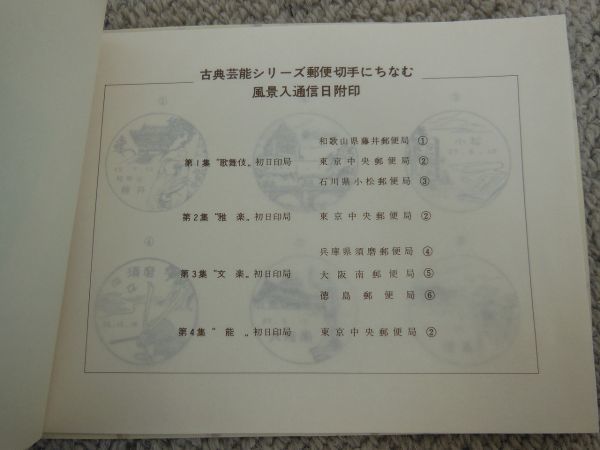 古典芸能シリーズ郵便切手にちなむ
風景入通信日附印
和歌山県藤井郵便局 ①
第1集〝歌舞伎〟初日印局 東京中央郵便局 ②
石川県小松郵便局 ③
第2集〝雅楽〟初日印局 東京中央郵便局 ②
兵庫県須磨郵便局 ④
第3集〝文楽〟初日印局 大阪南郵便局 ⑤
徳島郵便局 ⑥
第4集〝能〟初日印局 東京中央郵便局 ②
①
小松
藤井
④
須磨